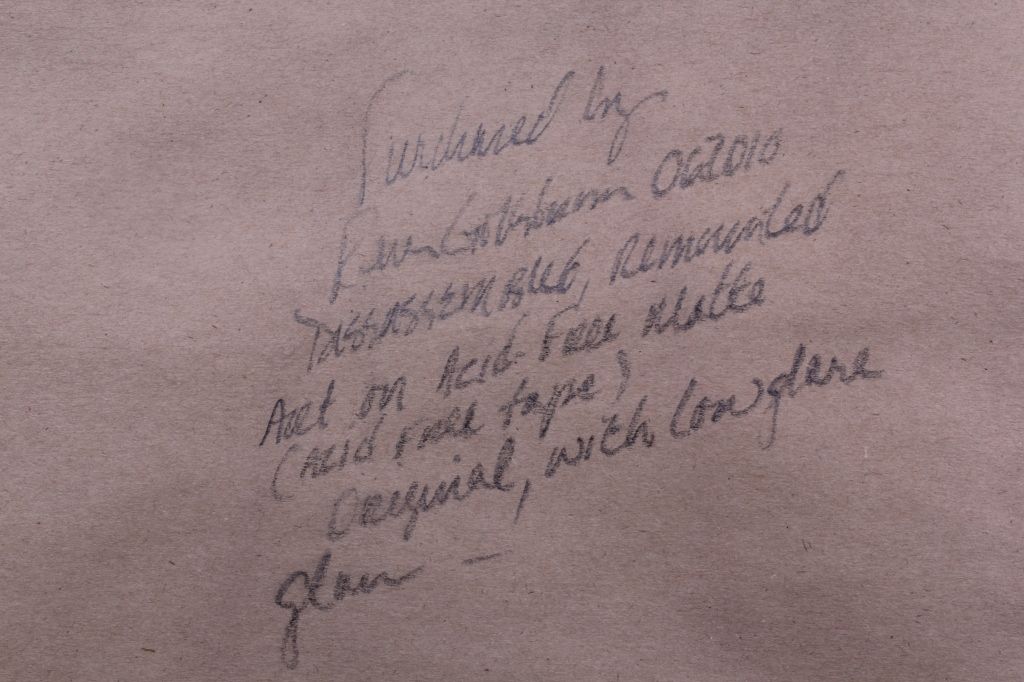 Purchased by
Oct2010
DISSASSEMBLED, Remounted
Art on Acid-Free Matte
(Acid Free tape)
Original, with Low glare
glass —